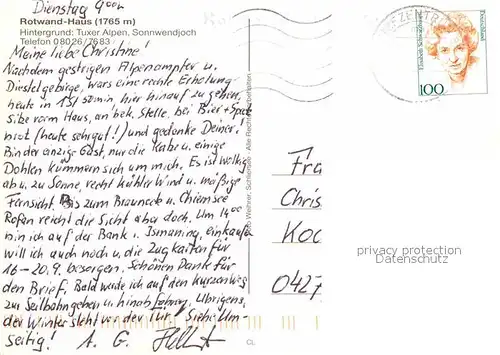 Dienstag 9 00 h
Rotwand-Haus (1765 m)
Hintergrund: Tuxer Alpen, Sonnwendjoch
Telefon 08026/7683
Meine liebe Christine!
Nachdem gestrigen Alpenampfer u.
Distelgebirge, war's eine rechte Erholung
heute in 1 Std 50 min hier hinauf zu gehen,
sitze vorm Haus, an bek. Stelle, bei Bier + Speck
brot (heute sehr gut!) und gedenke Deiner!
Bin der einzige Gast, nur die Katze u. einige
Dohlen kümmern sich um mich. Es ist wolkig
ab u. zu Sonne, recht kühler Wind u. mäßige
Fernsicht. Bis zum Brauneck u. Chiemsee
Rofan reicht die Sicht aber doch. Um 14 00
bin ich auf der Bank i. Ismaning, einkaufen
will ich auch noch u. die Zugkarten für
16 - 20.9. besorgen. Schönen Dank für
den Brief. Bald werde ich auf den kurzen Weg
zur Seilbahn gehen u. hinab fahren. Übrigens,
der Winter steht vor der Tür. Siehe Um-
seitig!
Schliersee · Alle Rechte vorbehalten
CL
Deutschland
100
Fra
Chris
Koc
0427
privacy protection
(DSGVO)